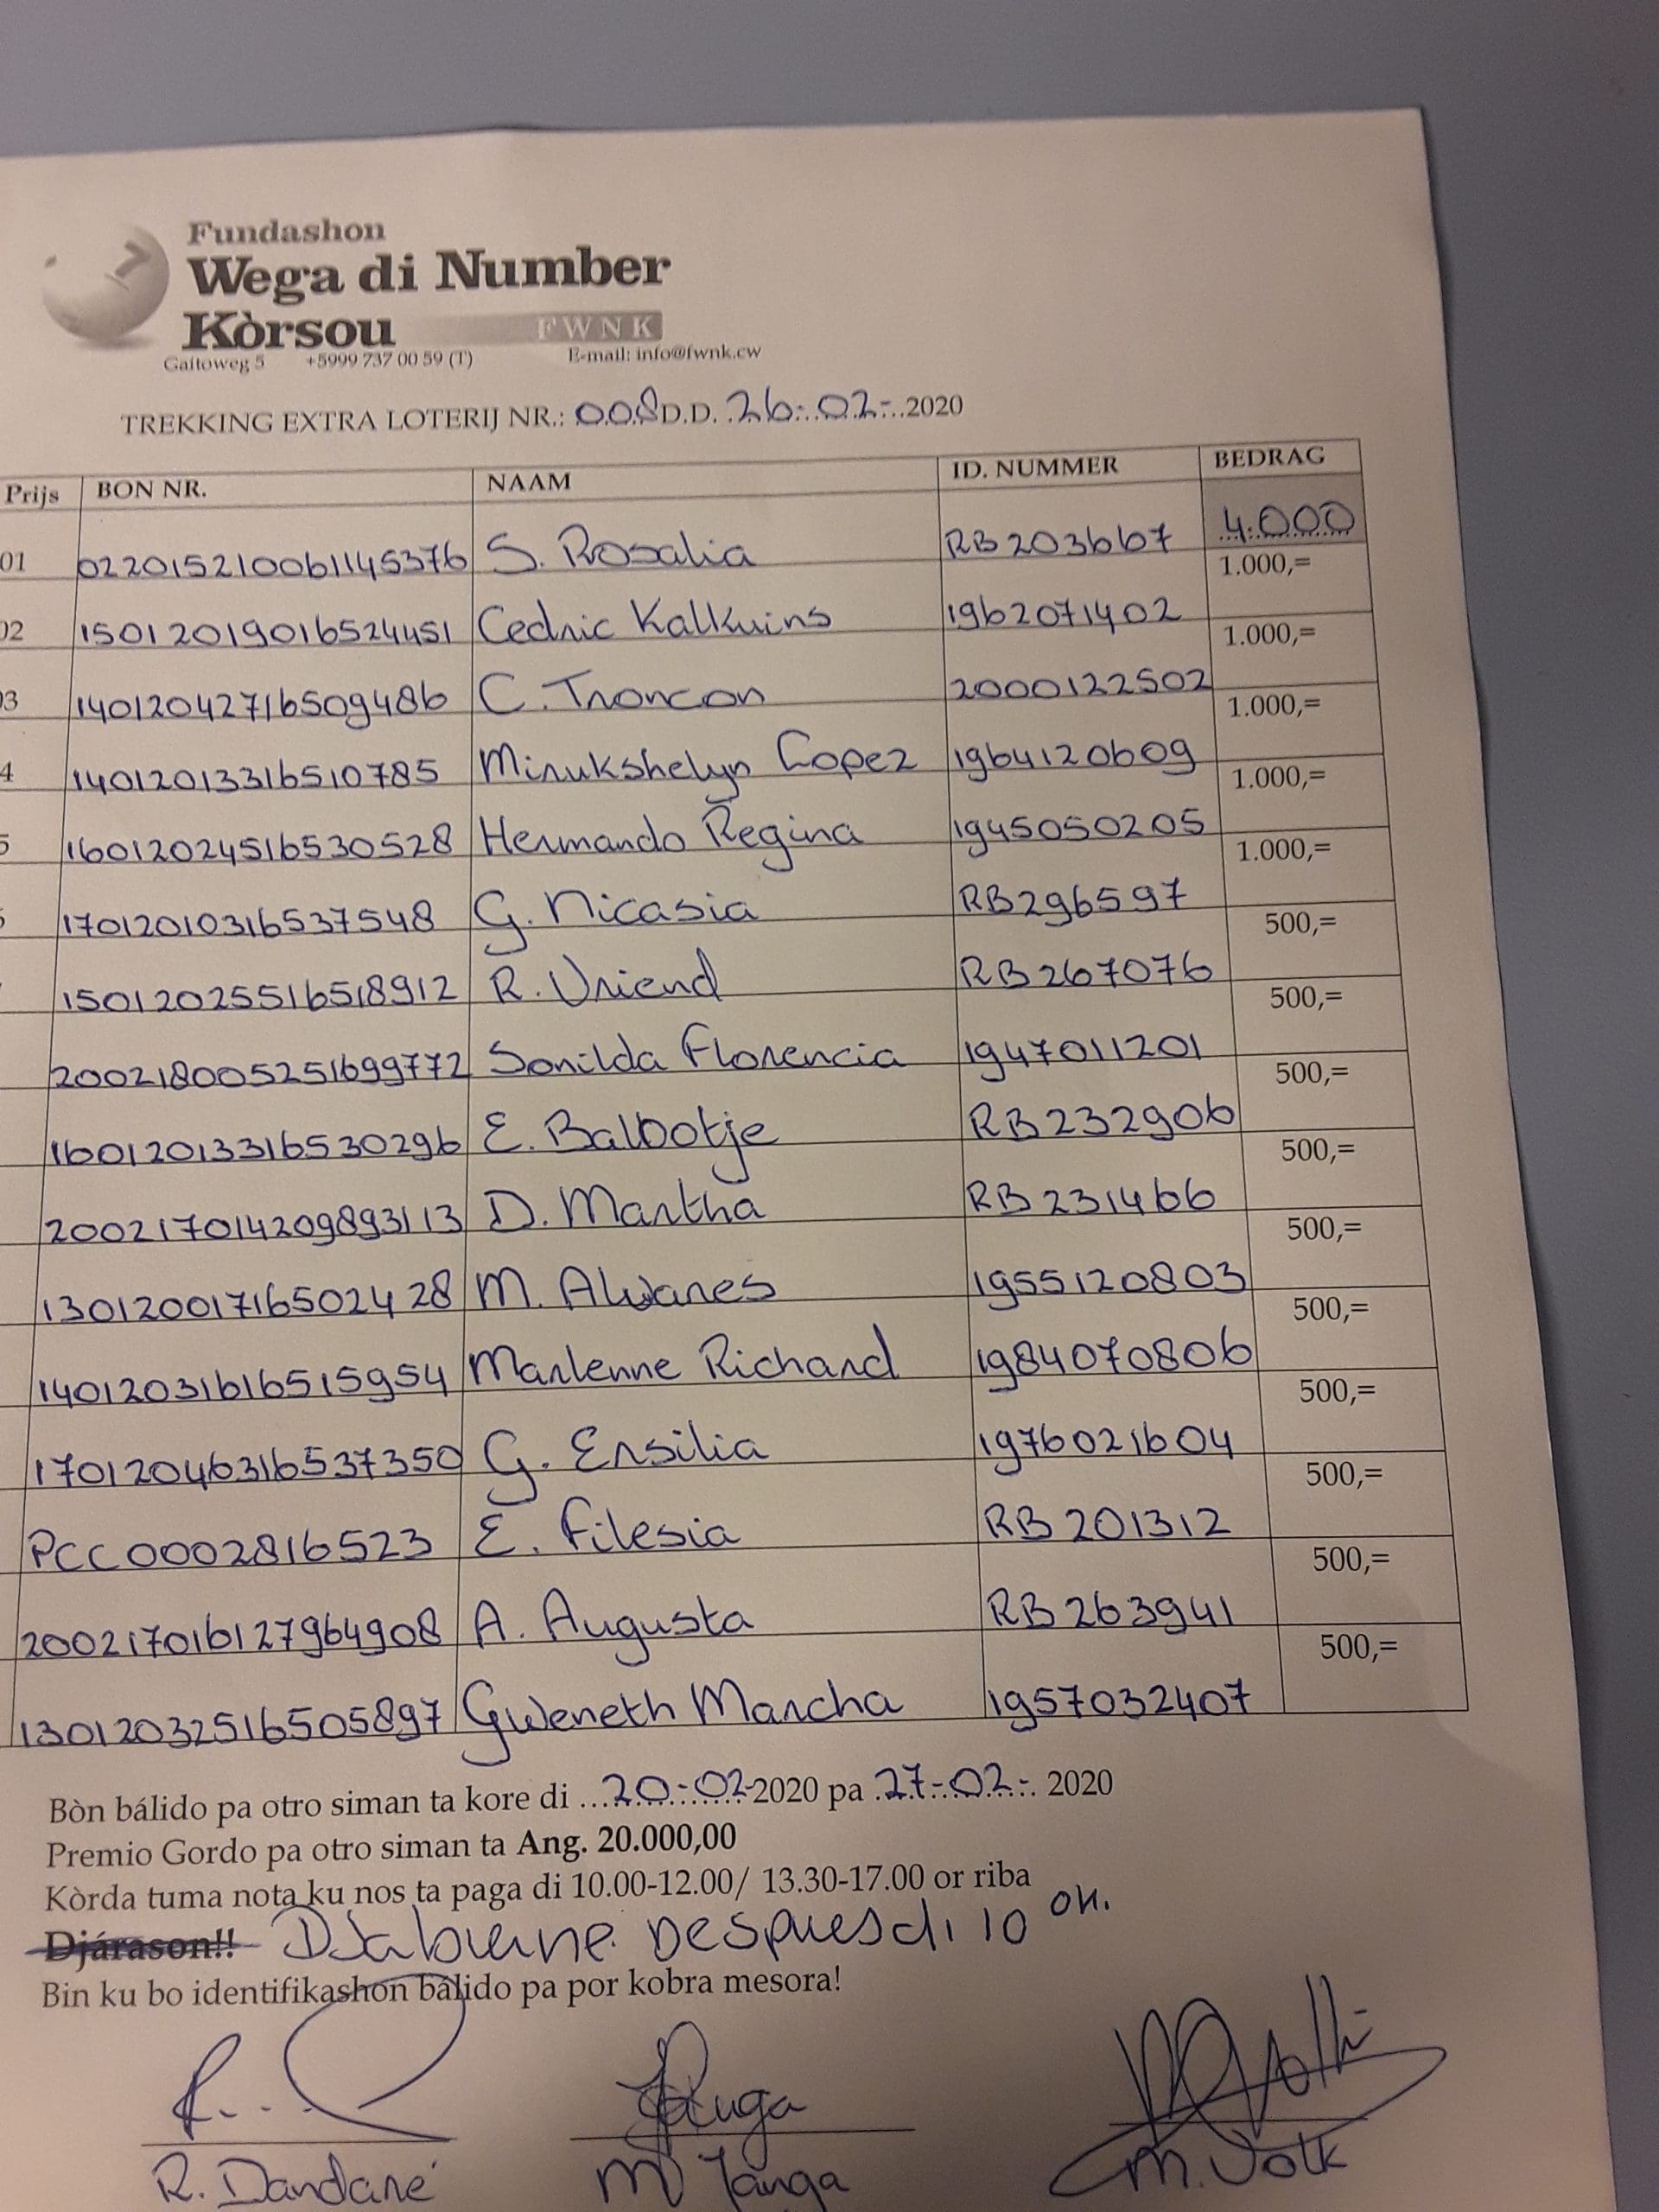 Fundashon
Wega di Number
Kòrsou FWNK
Gaitoweg 5 +5999 737 00 59 (T) E-mail: info@fwnk.cw
TREKKING EXTRA LOTERIJ NR.: 008 D.D. 26-02-2020
Prijs BON NR. NAAM ID. NUMMER BEDRAG
01 022015210061145376 S. Rosalia RB203667 4.000
02 15012019016524451 Cedric Kalkuins 1962071402 1.000,=
03 14012042716509486 C. Troncon 2000122502 1.000,=
4 14012013316510785 Minukshelyn Lopez 1964120609 1.000,=
5 16012024516530528 Hermando Regina 1945050205 1.000,=
17012010316537548 G. Nicasia RB296597 1.000,=
15012025516518912 R. Vriend RB267076 500,=
200218005251699772 Sonilda Florencia 1947011201 500,=
16012013316530296 E. Balootje RB232906 500,=
2002170142098931 13 D. Martha RB231466 500,=
130120017165024 28 M. Alvares 1955120803 500,=
14012031616515954 Marlenne Richard 1984070806 500,=
17012046316537350 G. Ersilia 1976021604 500,=
PCC0002816523 E. Filesia RB201312 500,=
200217016127964908 A. Augusta RB263941 500,=
13012032516505897 Gweneth Marcha 1957032407 500,=
Bòn bálido pa otro siman ta kore di 20-02-2020 pa 27-02-2020
Premio Gordo pa otro siman ta Ang. 20.000,00
Kòrda tuma nota ku nos ta paga di 10.00-12.00/ 13.30-17.00 or riba
Djárason!! Djabierne Despues di 10 or.
Bin ku bo identifikashon bálido pa por kobra mesora!
R. Dandaré M Janga M. Volk